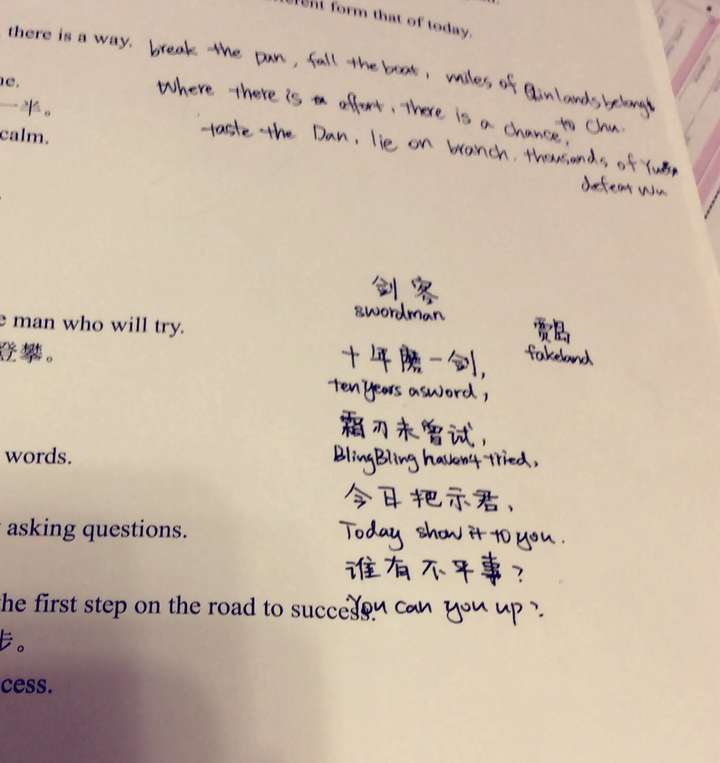 erent form that of today.
there is a way.
break the pan, fall the boat, miles of Qin lands belongs to Chu.
ne.
一半。
calm.
Where there is a effort, there is a chance,
taste the Dan, lie on branch. thousands of Yue
defeat Wu
剑客
swordman
贾岛
fakeland
e man who will try.
登攀。
十年磨一剑,
ten years a sword,
霜刃未曾试,
BlingBling haven't tried,
words.
今日把示君,
Today show it to you.
asking questions.
谁有不平事?
You can you up?
the first step on the road to success.
步。
cess.